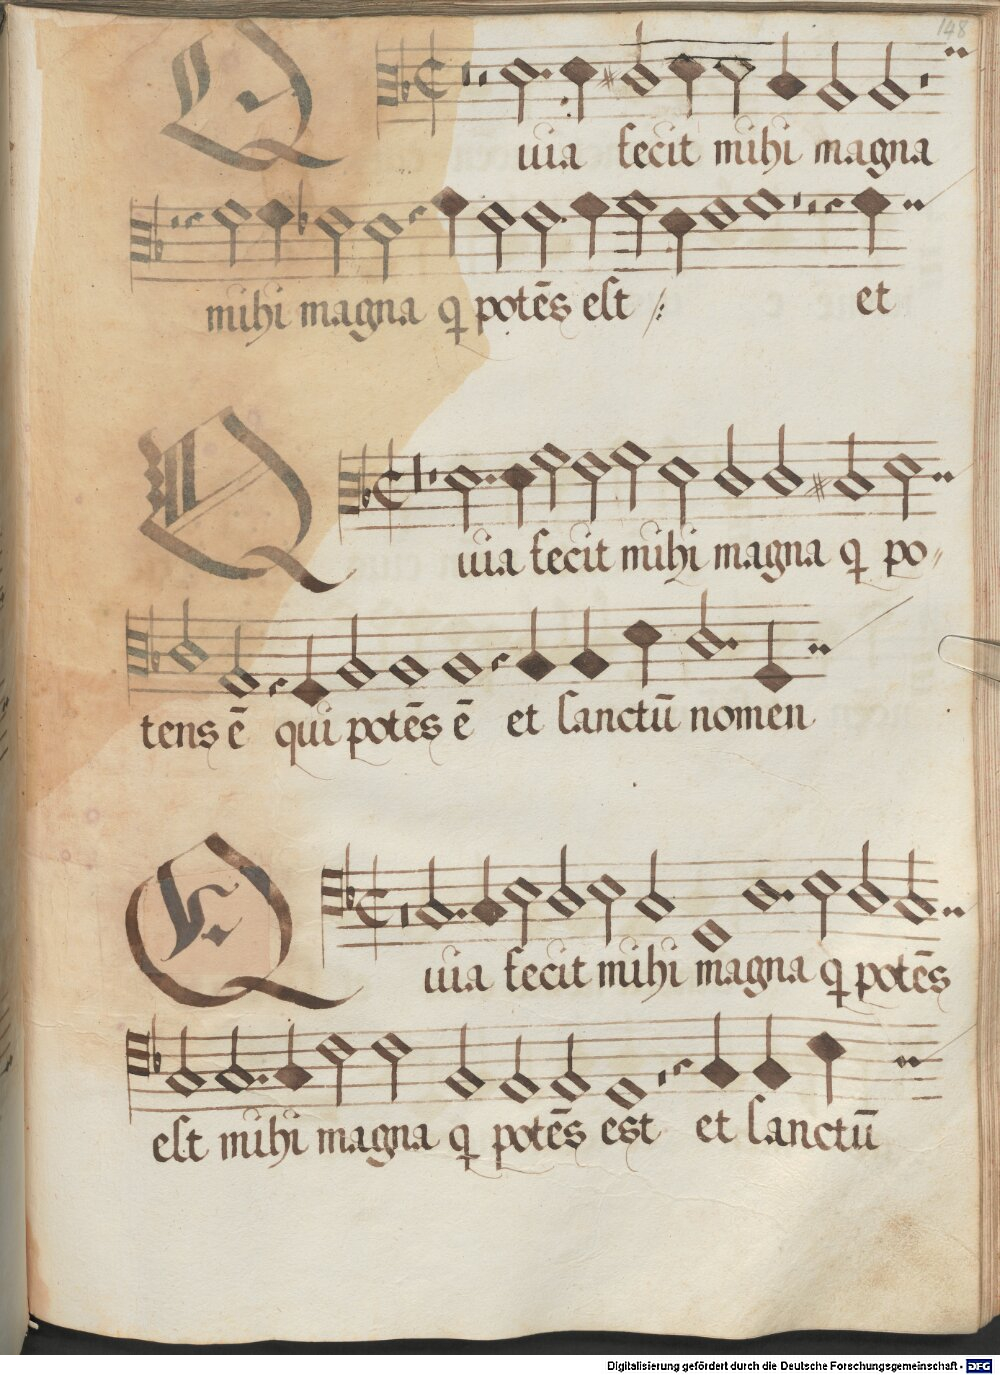 148
Quia fecit mihi magna
mihi magna q potēs est /: et
Quia fecit mihi magna q po=
tens ē qui potēs ē et sanctū nomen
Quia fecit mihi magna q potēs
est mihi magna q potēs est et sanctū
Digitalisierung gefördert durch die Deutsche Forschungsgemeinschaft - DFG